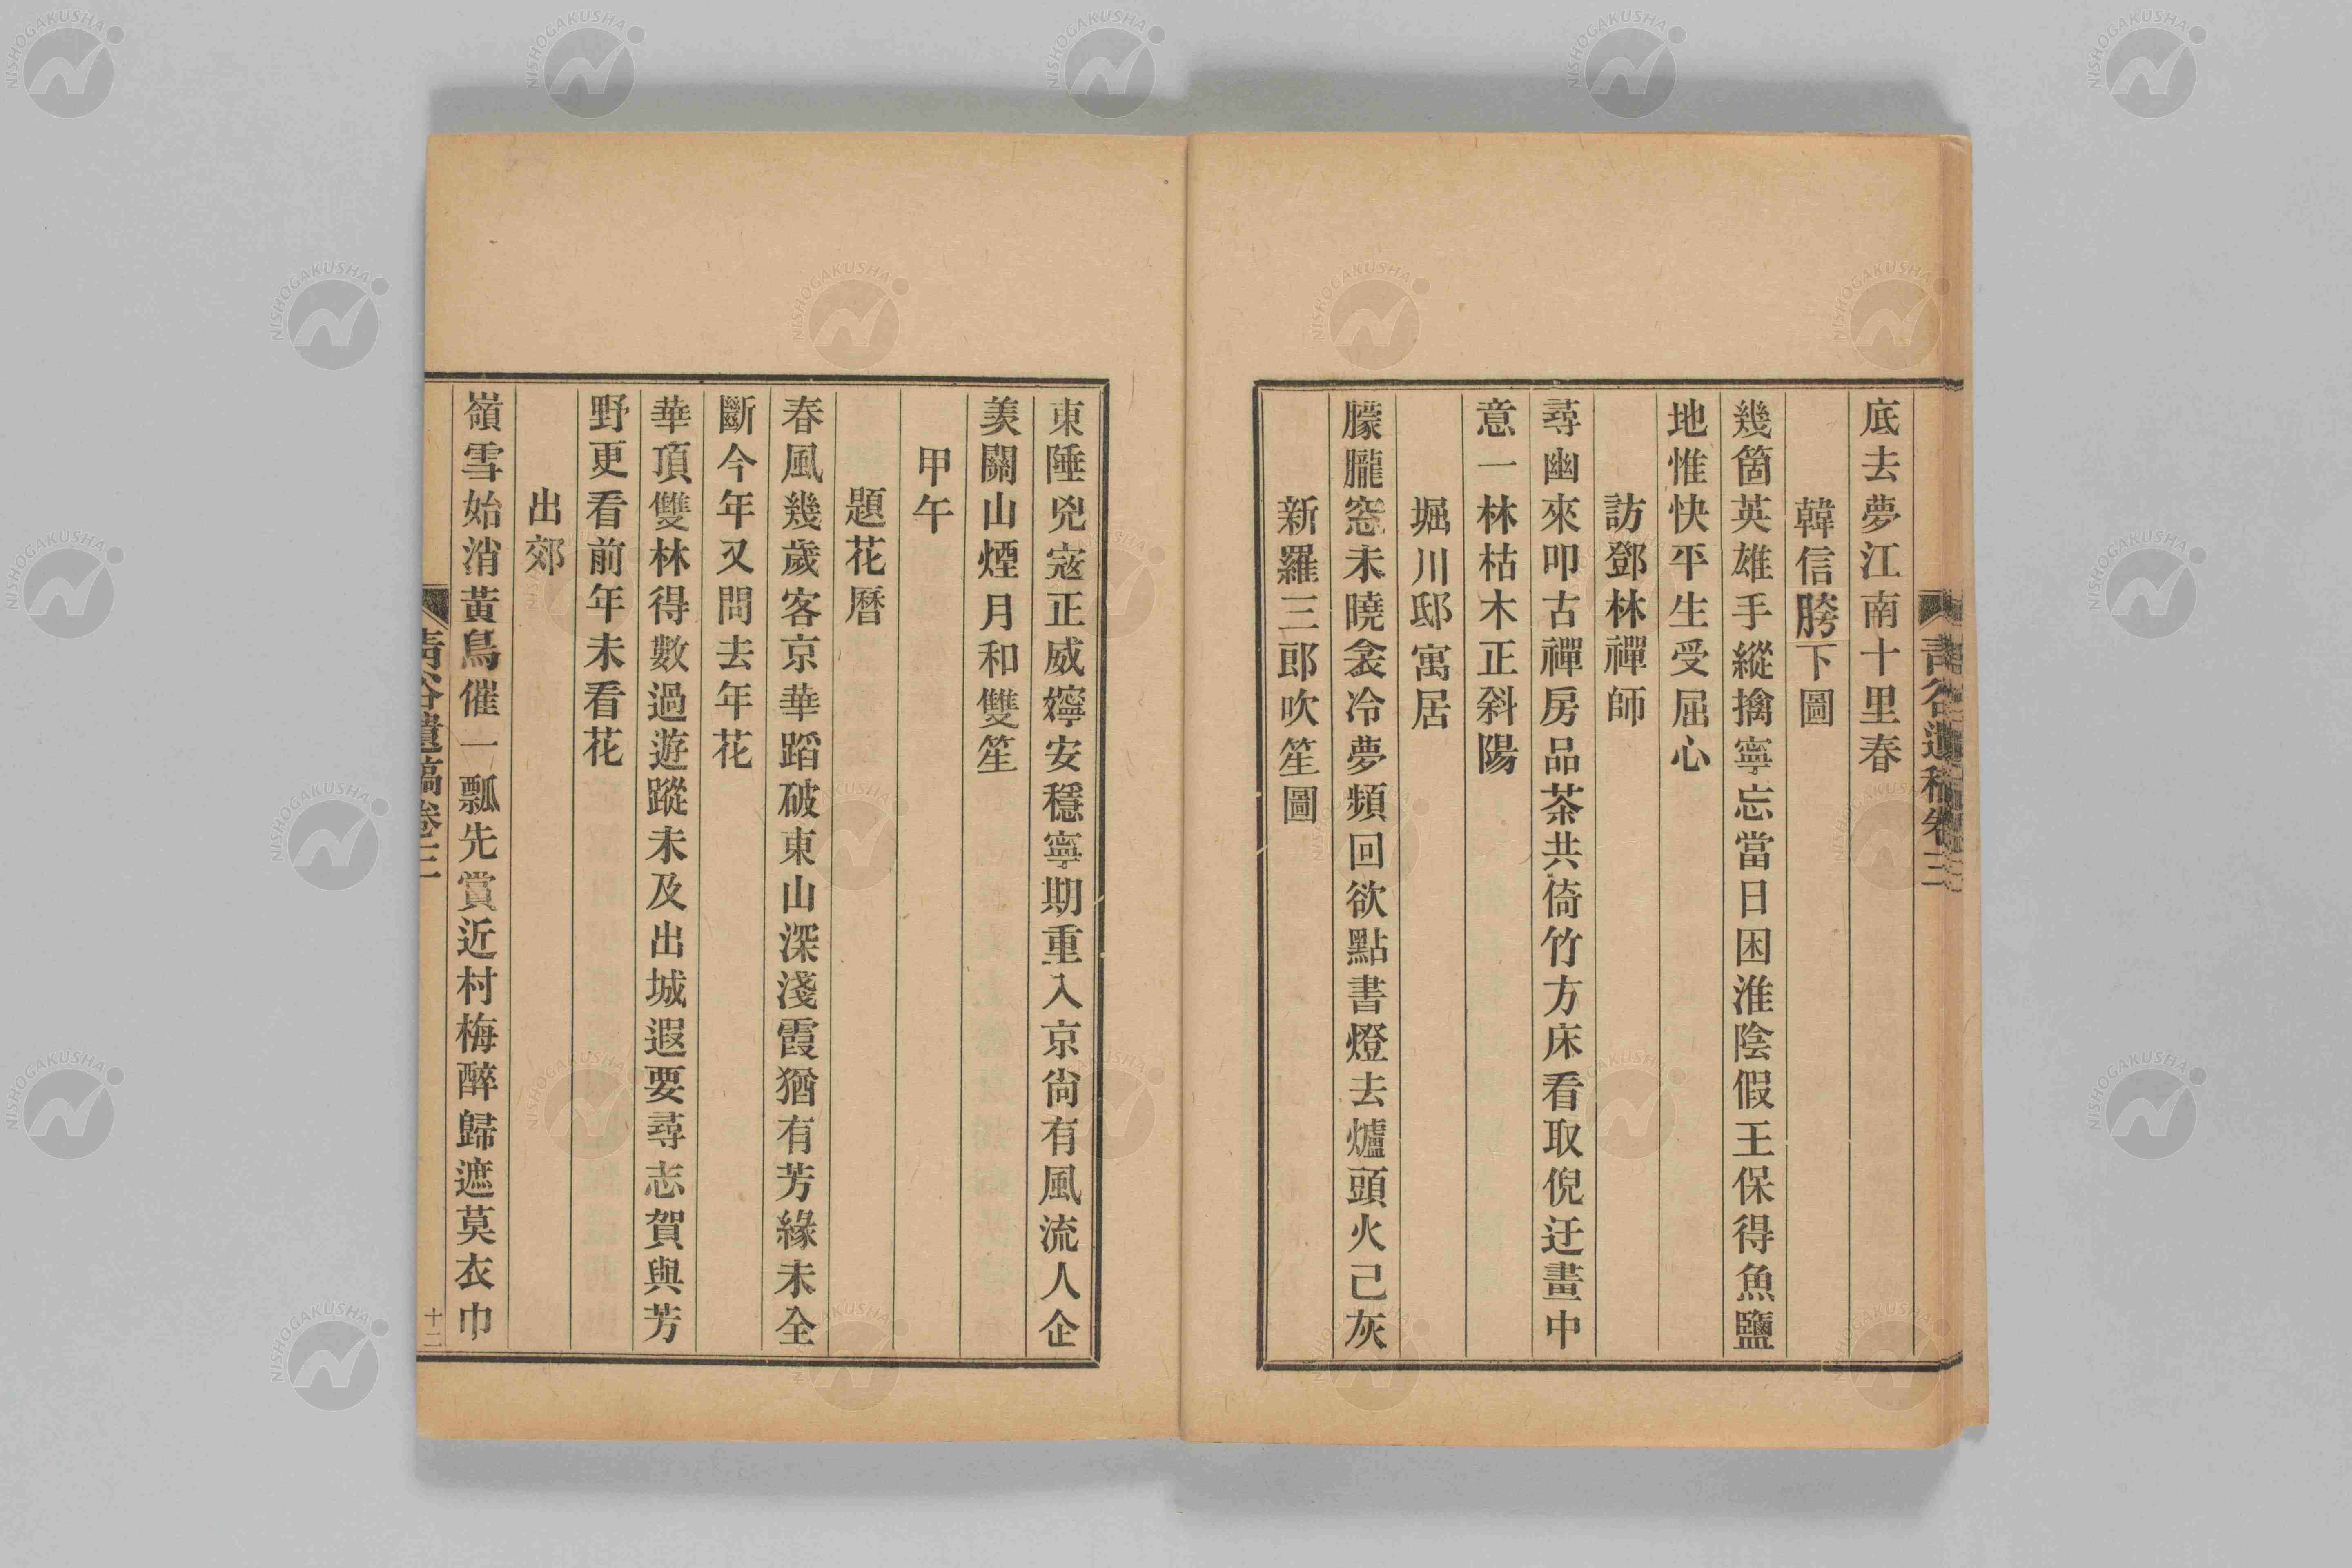 底去夢江南十里春
韓信胯下圖
幾箇英雄手縱擒寧忘當日困淮陰假王保得魚鹽
地惟快平生受屈心
訪鄧林禪師
尋幽來叩古禪房品茶共倚竹方床看取倪迂畫中
意一林枯木正斜陽
堀川邸寓居
朦朧窓未曉衾冷夢頻回欲點書燈去爐頭火已灰
新羅三郎吹笙圖
東陲兇寇正威嬣安穩寧期重入京尙有風流人企
羨關山煙月和雙笙
甲午
題花曆
春風幾歲客京華蹈破東山深淺霞猶有芳緣未全
斷今年又問去年花
華頂雙林得數過遊蹤未及出城遐要尋志賀與芳
野更看前年未看花
出郊
嶺雪始消黃鳥催一瓢先賞近村梅醉歸遮莫衣巾
靑谷遺稿卷三
十二
NISHOGAKUSHA